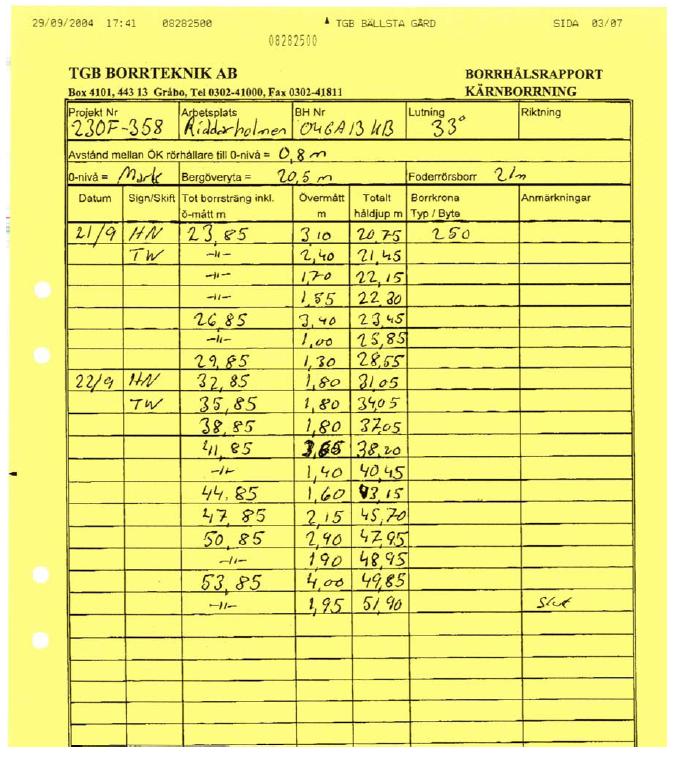 29/09/2004 17:41 08282500 TGB BÄLLSTA GÅRD SIDA 03/07
08282500
TGB BORRTEKNIK AB BORRHÅLSRAPPORT
Box 4101, 443 13 Gråbo, Tel 0302-41000, Fax 0302-41811 KÄRNBORRNING
Projekt Nr Arbetsplats BH Nr Lutning Riktning
230F-358 Riddarholmen 04GA13KB 33°
Avstånd mellan ÖK rörhållare till 0-nivå = 0,8 m
0-nivå = Mark Bergöveryta = 20,5 m Foderrörsborr 21m
Datum Sign/Skift Tot borrsträng inkl. Övermått Totalt Borrkrona Anmärkningar
ö-mått m m håldjup m Typ / Byte
21/9 HN 23,85 3,10 20,75 250
TW -11- 2,40 21,45
-11- 1,70 22,15
-11- 1,55 22,30
26,85 3,40 23,45
-11- 1,00 25,85
29,85 1,30 28,55
22/9 HN 32,85 1,80 31,05
TW 35,85 1,80 34,05
38,85 1,80 37,05
41,85 3,65 38,20
-11- 1,40 40,45
44,85 1,60 43,15
47,85 2,15 45,70
50,85 2,90 47,95
-11- 1,90 48,95
53,85 4,00 49,85
-11- 1,95 51,90 Slut